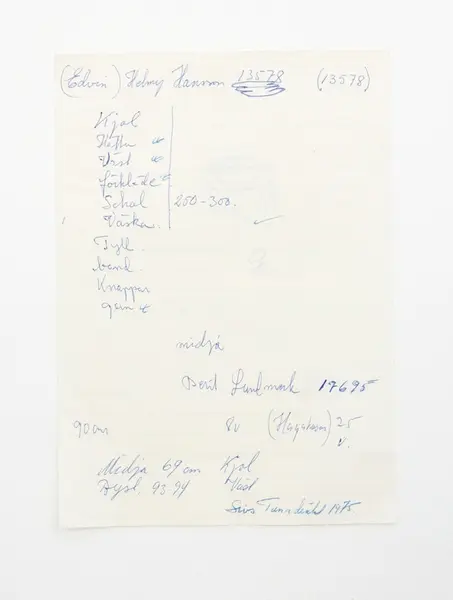 (Edvin) Helmy Hansson 13578 (13578)
Kjol
Hätta
Väst
förkläde
Schal 250-300.
Väska.
Tyll.
band.
Knappar
garn
midja
Berit Lundmark 17695
90 cm 8v (Hagakorm) 25
v.
Midja 69 cm Kjol
Byst. 93 94 Väst
Siv 1975